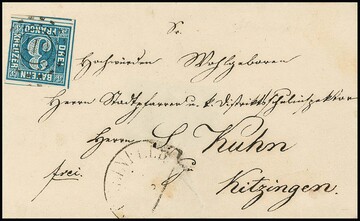 Sr.
Hochwürden Wohlgeboren
Herrn Stadtpfarrer u. k. Distriktsschulinspektor
Herrn S. Kuhn
zu
frei.
Kitzingen.
BAYERN
DREI
KREUZER
FRANCO
3